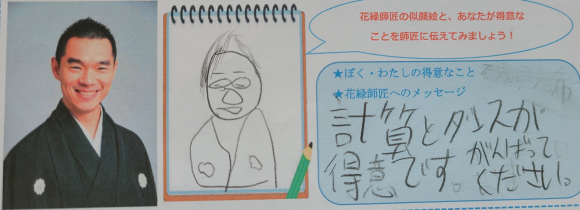 花緑師匠の似顔絵と、あなたが得意な
ことを師匠に伝えてみましょう！
★ぼく・わたしの得意なこと
★花緑師匠へのメッセージ
計算とダンスが
得意です。がんばって
ください。